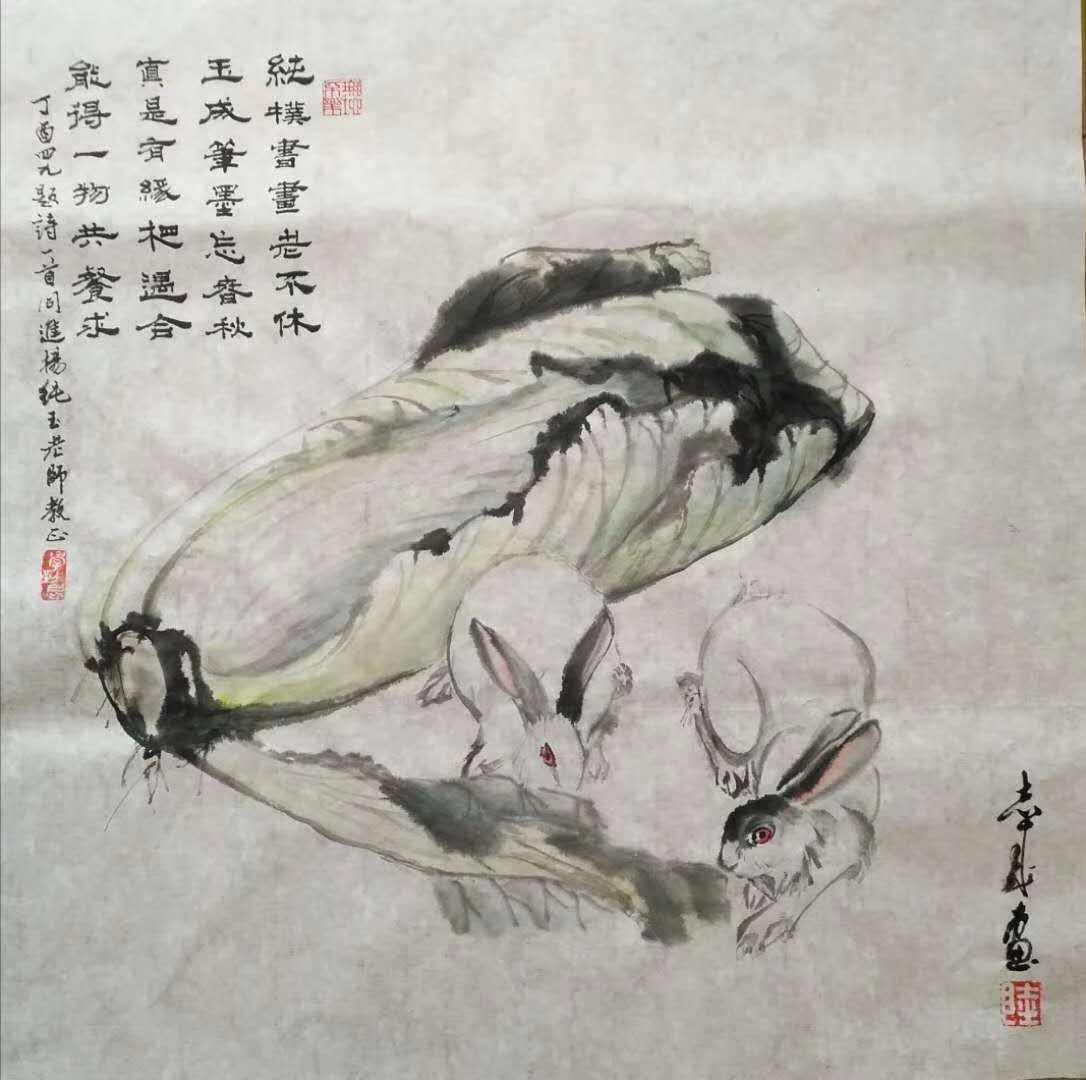 純樸書畫老不休
玉成筆墨忘春秋
真是有緣把遇合
能得一物共餐求
丁酉四九題詩一首同進楊純玉老師教正
畫